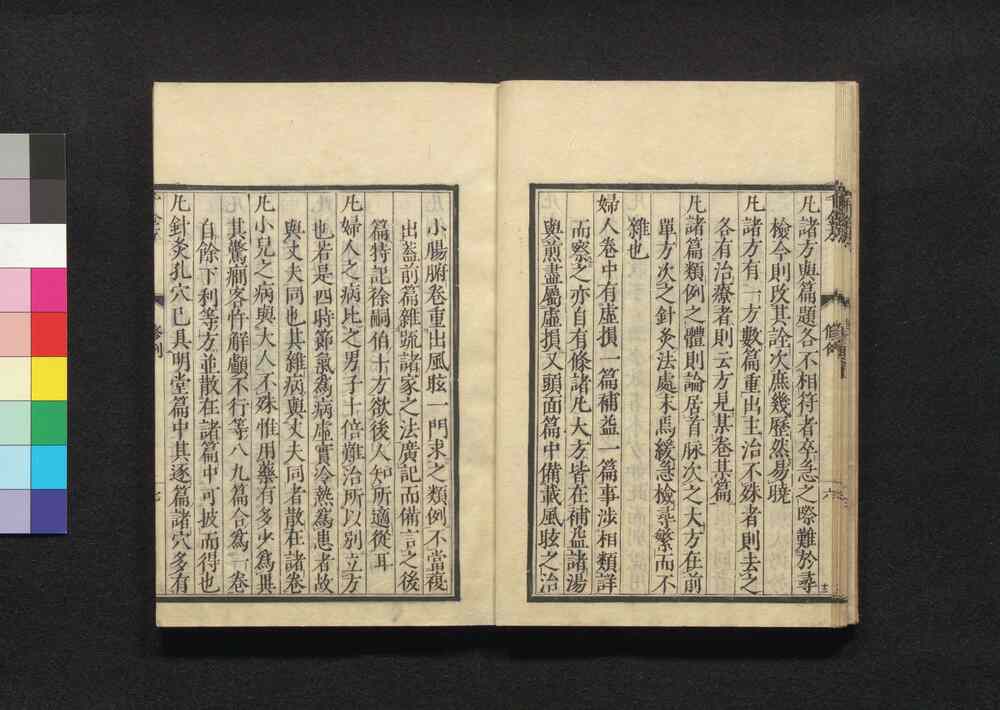 凡諸方與篇題各不相符者卒急之際難於尋
檢今則改其詮次庶幾歷然易曉
凡諸方有一方數篇重出主治不殊者則去之
各有治療者則云方見某卷某篇
凡諸篇類例之體則論居首脉次之大方在前
單方次之針灸法處末焉緩急檢尋繁而不
雜也
婦人卷中有虛損一篇補益一篇事涉相類詳
而察之亦自有條諸凡大方皆在補益諸湯
與煎盡屬虛損又頭面篇中備載風眩之治
小腸腑卷重出風眩一門求之類例不當複
出蓋前篇雜疏諸家之法廣記而備言之後
篇特記徐嗣伯十方欲後人知所適從耳
凡婦人之病比之男子十倍難治所以別立方
也若是四時節氣為病虛實冷熱為患者故
與丈夫同也其雜病與丈夫同者散在諸卷
凡小兒之病與大人不殊惟用藥有多少為異
其驚癇客忤解顱不行等八九篇合為一卷
自餘下利等方並散在諸篇中可披而得也
凡針灸孔穴已具明堂篇中其逐篇諸穴多有